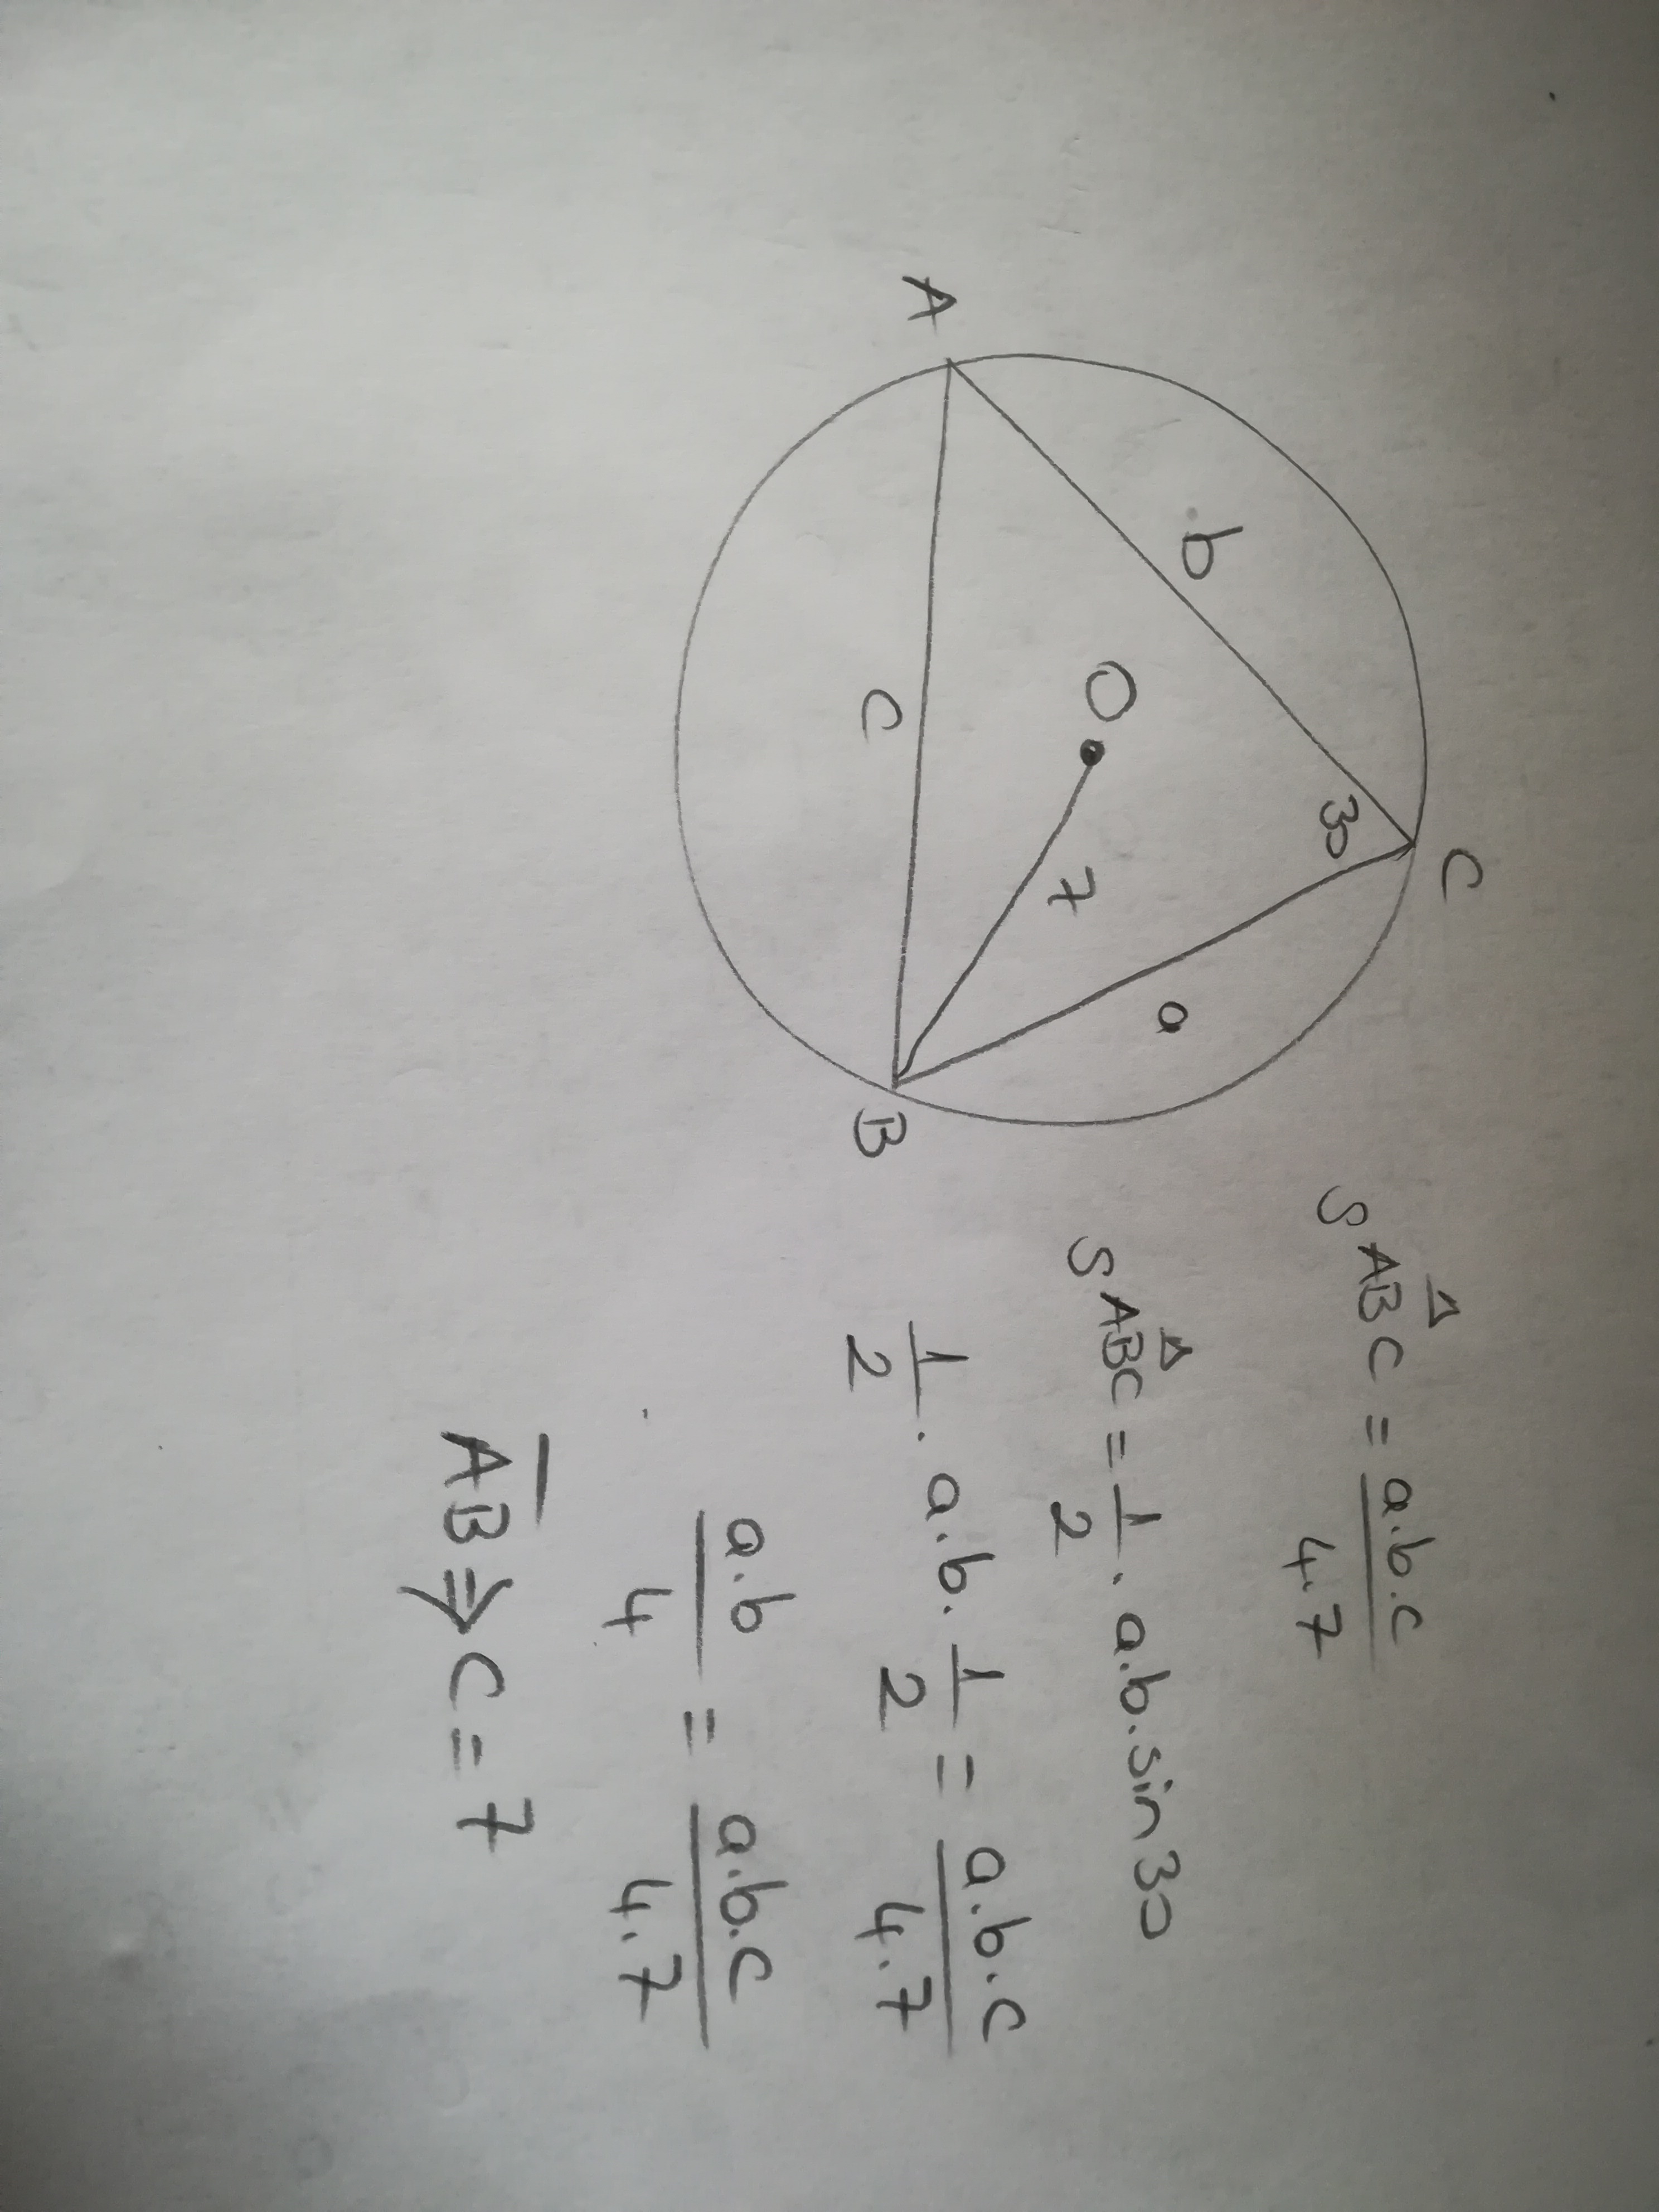 C
30
b
a
O
7
c
A
B
S ABC△ = a.b.c / 4.7
S ABC△ = 1/2 . a.b.sin30
1/2 . a.b. 1/2 = a.b.c / 4.7
a.b / 4 = a.b.c / 4.7
A̅B̅ ⇒ c = 7